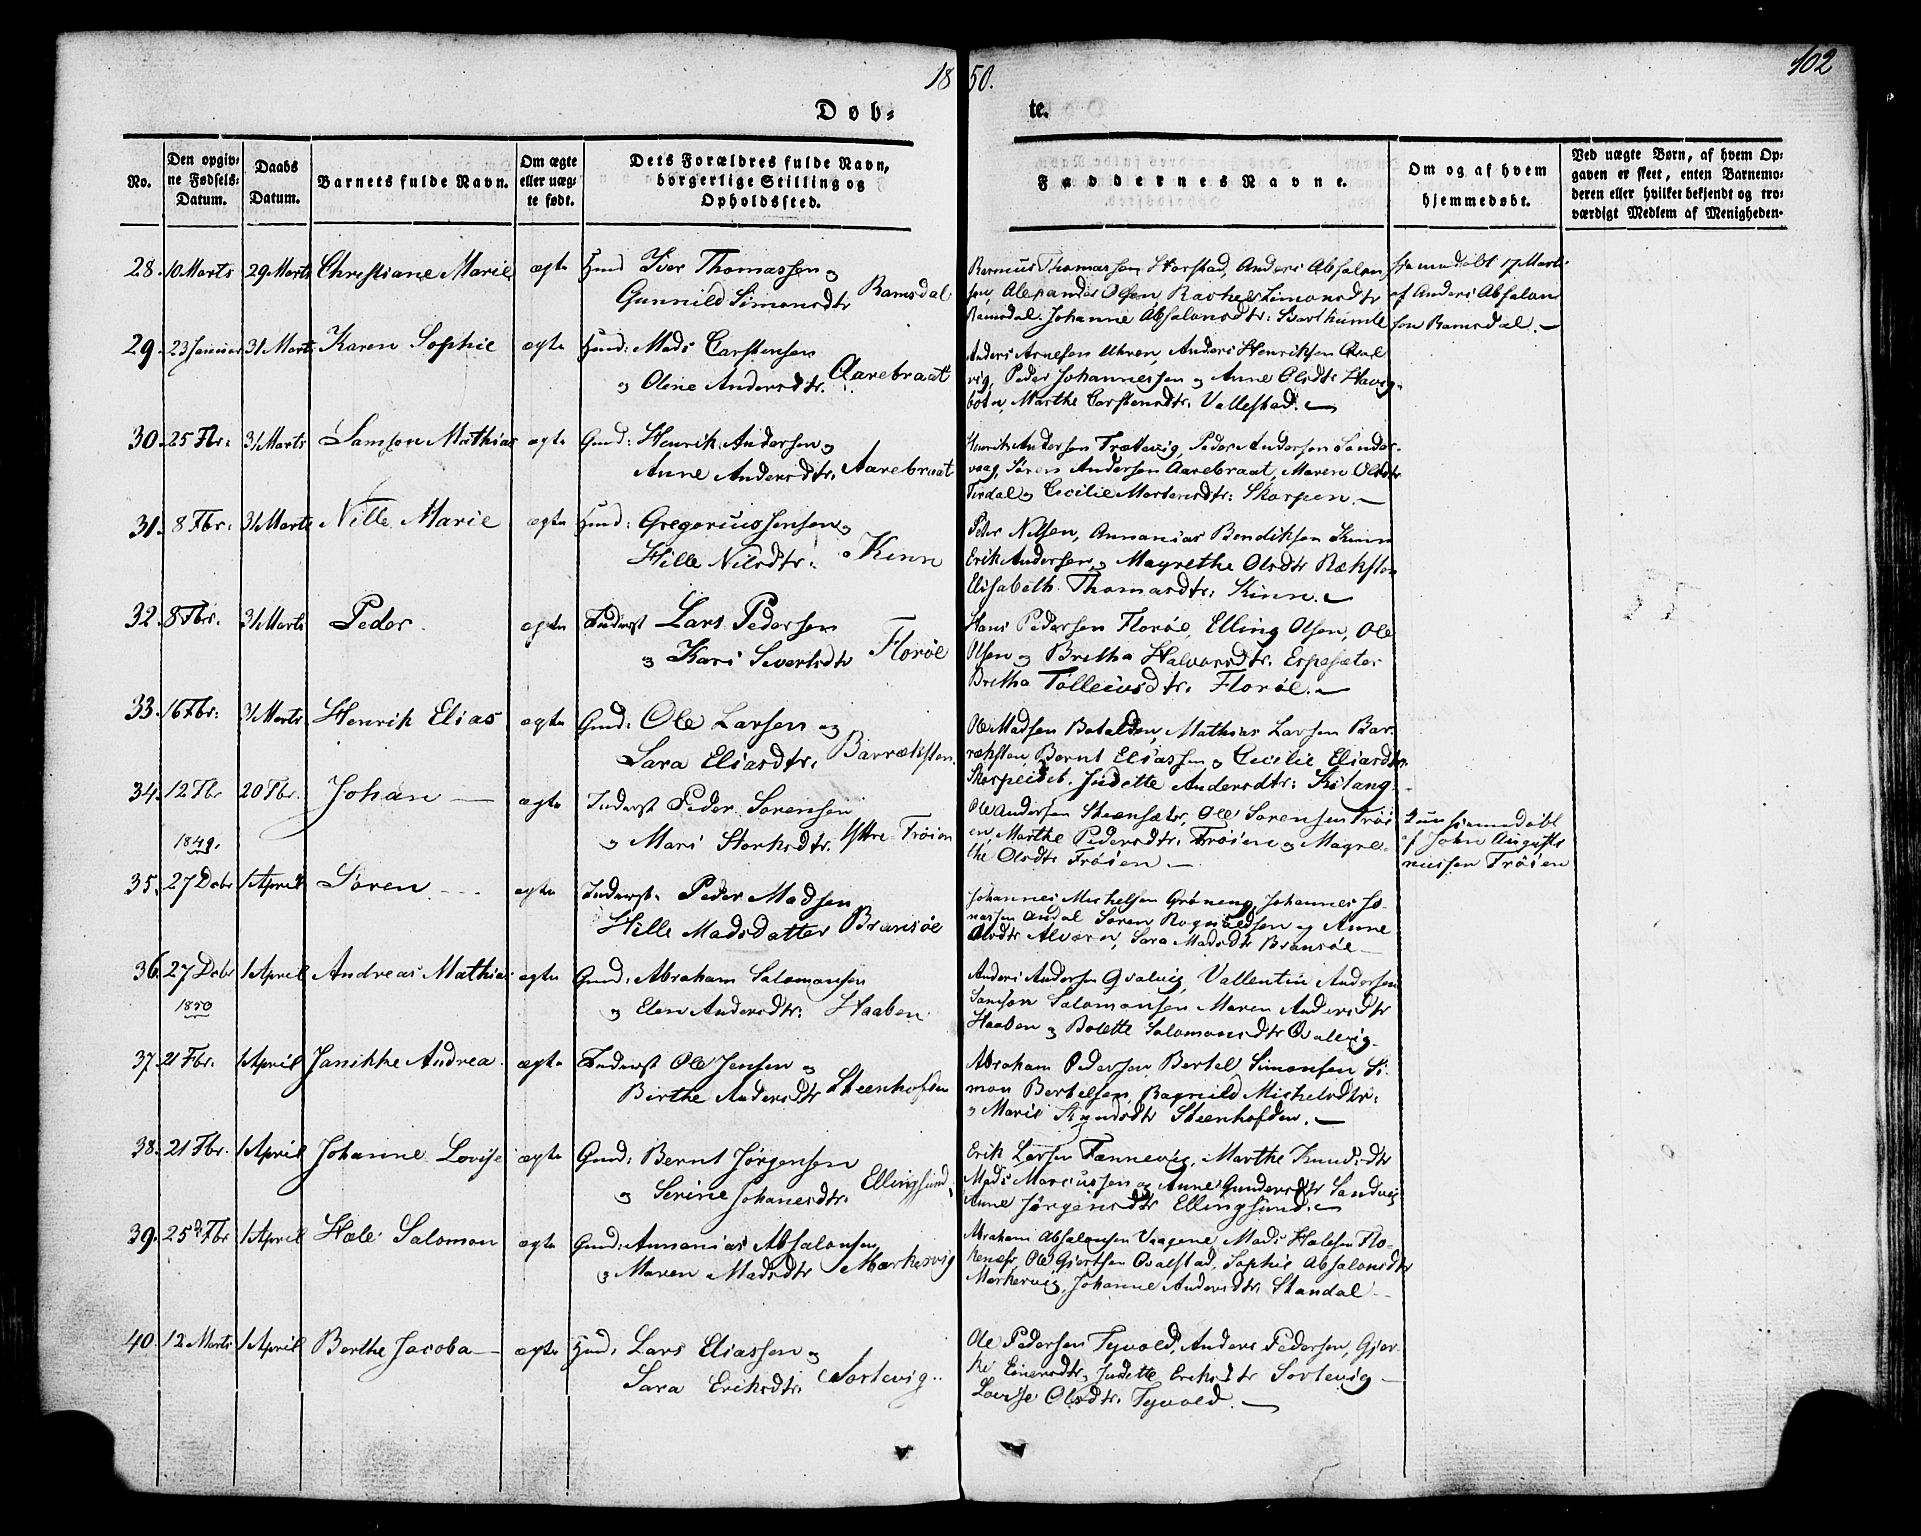 1850.
102
Døb-
te.
No.
Den opgiv-
ne Fødsels-
Datum.
Daabs
Datum.
Barnets fulde Navn.
Om ægte
eller uæg-
te født.
Dets Forældres fulde Navn,
borgerlige Stilling og
Opholdssted.
Faddernes Navne.
Om og af hvem
hjemmedøbt.
Ved uægte Børn, af hvem Op-
gaven er skeet, enten Barnemo-
deren eller hvilket bekjendt og tro-
værdigt Medlem af Menigheden.
28. 10 Marts 29 Marts Christiane Marie ægte Huusd Iver Thomassen og
Gunnild Simonsdtr Ramsdal
Rasmus Thomassen Storstad, Anders Absalon
sen, Alexander Olsen, Rachel Simonsdtr
Ramsdal. Johanne Absalonsdtr: Svarthumle
Hjemmedøbt 17 Marts
af Anders Absalon
sen Ramsdal. —
29. 23 Januar 31 Marts Karen Sophie ægte Huusd: Mads Carstensen
og Oline Andersdtr. Aarebraat
Anders Arnesen Uhren, Anders Henriksen Qval
vig, Peder Johannessen og Anne Olsdtr Havig
boten, Marthe Carstensdtr. Vallestad. —
30. 25 Fbr: 31 Marts Samson Mathias ægte Gmd: Henrik Andersen og
Anne Andersdtr. Aarebraat
Henrik Andersen Trættevig, Peder Andersen Sander-
vaag, Søren Andersen Aarebraat, Maren Olsdtr
Tirdal og Cecilie Mortensdtr: Skorpen. —
31. 8 Fbr: 31 Marts Nille Marie ægte Huusd: Gregorius Jensen og
Hille Nilsdtr: Kinn
Peder Nilsen, Annanias Bendiksen Kinn
Erik Andersen og Magrethe Olsdtr Ræksten
Elisabeth Thomasdtr: Kinn. —
32. 8 Fbr. 31 Marts Peder ægte Inderst Lars Pedersen
og Kari Sivertsdtr Florøe
Hans Pedersen Florøe, Elling Olsen, Ole
Olsen og Britha Halvorsdtr: Espesæter
Britha Tolleivsdtr. Florøe. —
33. 16 Fbr: 31 Marts Henrik Elias ægte Gmd: Ole Larsen og
Sara Eliasdtr. Barræksten.
Ole Madsen Batalden, Mathias Larsen Bar-
ræksten, Bernt Eliassen og Cecilie Eliasdtr
Skorpeidet. Judette Andersdtr: Kilang.
34. 12 Fbr 20 Fbr. Johan — ægte Inderst Peder Sørensen
og Mari Storksdtr. Yttre Trøien
Ole Andersen Steensæter, Ole Sørensen Trøi
en, Marthe Pedersdtr. Trøien og Magre-
the Olsdtr Trøien —
hjemmedøbt
af John Augusti
nussen Trøien
1849.
35. 27 Dcbr 1 April Søren ægte Inderst. Peder Madsen
Hille Madsdatter Bransøe
Johannes Michelsen Grøneng, Johannes Jo-
nassen Andal Søren Rognaldsen og Anne
Olsdtr Alværn, Sara Madsdtr Bransøe —
36. 27 Dcbr 1 April Andreas Mathias ægte Gmd: Abraham Salomonsen
og Elen Andersdtr: Haaben
Anders Andersen Qvalvig, Vallentin Andersen
Samson Salomonsen Maren Andersdtr
Haaben og Bolette Salomonsdtr Qvalvig
1850
37. 21 Fbr. 1 April Janikke Andrea ægte Inderst Ole Jensen og
Birthe Andersdtr Steenhofden
Abraham Pedersen Bertel Simonsen Si-
mon Bertelsen, Ragnild Michelsdtr:
og Marie Knudsdtr Steenhofden. —
38. 21 Fbr. 1 April Johanne Lovise ægte Gmd: Bernt Jørgensen
og Serine Johanesdtr. Ellingsund.
Erik Larsen Fannevig, Marthe Knudsdtr
Mads Marcussen og Anne Gundersdtr Sandvig
Anne Jørgensdtr Ellingsund. —
39. 25 Fbr 1 April Hæle Salomon ægte Gmd: Annanias Absalonsen
og Maren Madsdtr Markevig
Abraham Absalonsen Vaagene Mads Hælesen Flo-
kenæs, Ole Giertsen Qvalstad, Sophie Absalonsdtr
Markevig, Johanne Andersdtr Standal —
40. 12 Marts 1 April Berthe Jacoba — ægte Huusd: Lars Eliassen og
Sara Eriksdtr. Sortevig.
Ole Pedersen Tyvold, Anders Pedersen, Gjer-
Einersdtr, Judette Eriksdtr Sortevig
Lovise Olsdtr. Tyvold. —